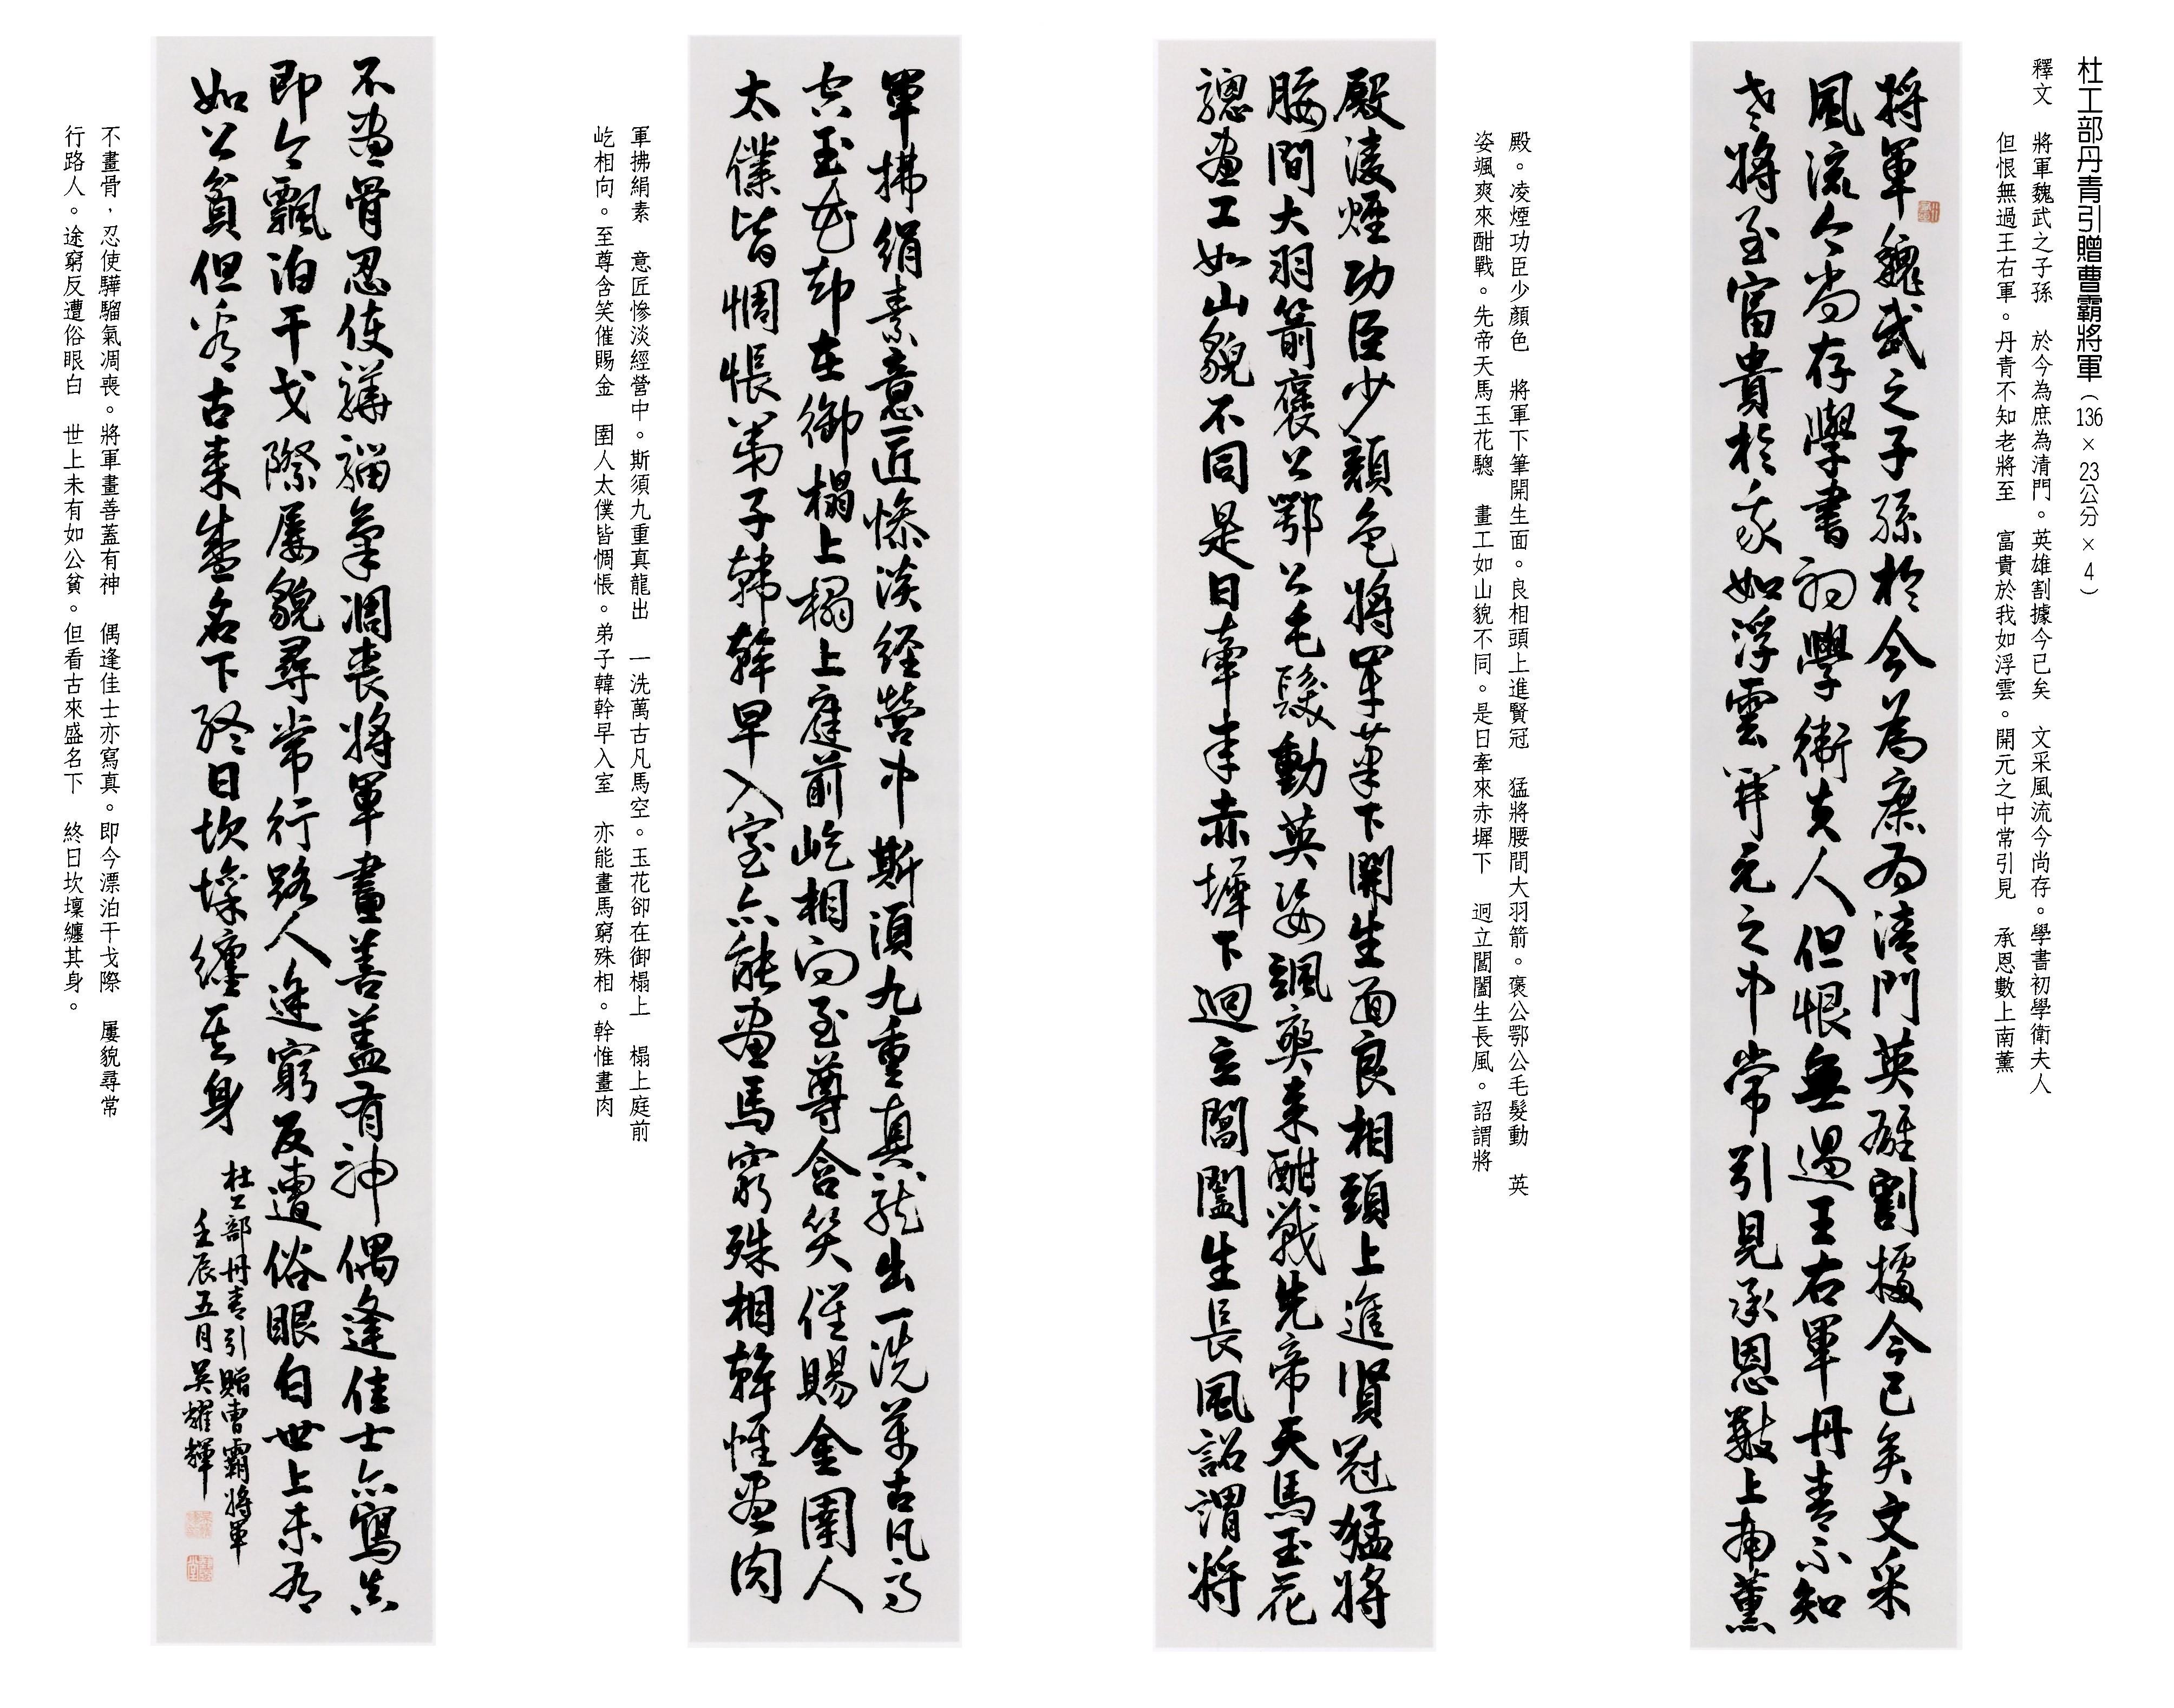 杜工部丹青引贈曹霸將軍（136×23公分×4）
釋文　將軍魏武之子孫　於今為庶為清門。英雄割據今已矣　文采風流今尚存。學書初學衛夫人
但恨無過王右軍。丹青不知老將至　富貴於我如浮雲。開元之中常引見　承恩數上南薰
將軍魏武之子孫於今為庶為清門英雄割據今已矣文采
風流今尚存學書初學衛夫人但恨無過王右軍丹青不知
老將至富貴於我如浮雲開元之中常引見承恩數上南薰
殿。凌煙功臣少顏色　將軍下筆開生面。良相頭上進賢冠　猛將腰間大羽箭。褒公鄂公毛髮動　英
姿颯爽來酣戰。先帝天馬玉花驄　畫工如山貌不同。是日牽來赤墀下　迥立閶闔生長風。詔謂將
殿淩煙功臣少顏色將軍筆下開生面良相頭上進賢冠猛將
腰間大羽箭褒公鄂公毛髮動英姿颯爽來酣戰先帝天馬玉花
驄畫工如山貌不同是日牽來赤墀下迥立閶闔生長風詔謂將
軍拂絹素　意匠慘淡經營中。斯須九重真龍出　一洗萬古凡馬空。玉花卻在御榻上　榻上庭前
屹相向。至尊含笑催賜金　圉人太僕皆惆悵。弟子韓幹早入室　亦能畫馬窮殊相。幹惟畫肉
軍拂絹素意匠慘淡經營中斯須九重真龍出一洗萬古凡馬
空玉花却在御榻上榻上庭前屹相向至尊含笑催賜金圉人
太僕皆惆悵弟子韓幹早入室亦能畫馬窮殊相幹惟畫肉
不畫骨，忍使驊騮氣凋喪。將軍畫善蓋有神　偶逢佳士亦寫真。即今漂泊干戈際　屢貌尋常
行路人。途窮反遭俗眼白　世上未有如公貧。但看古來盛名下　終日坎壈纏其身。
不畫骨忍使驊騮氣凋喪將軍畫善蓋有神偶逢佳士亦寫真
即今飄泊干戈際屢貌尋常行路人途窮反遭俗眼白世上未有
如公貧但看古來盛名下終日坎壈纏其身
杜工部丹青引贈曹霸將軍
壬辰五月吳耀輝